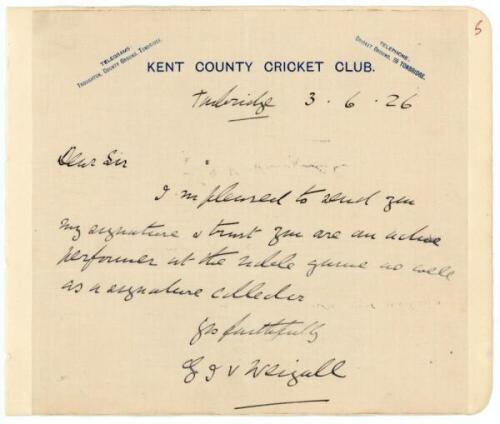 TELEGRAMS
TROUGHTON, COUNTY GROUND, TONBRIDGE.
TELEPHONE:
CRICKET GROUND, 19 TONBRIDGE.
5
KENT COUNTY CRICKET CLUB.
Tunbridge 3 . 6 . 26
Dear Sir
I m pleased to send you
my signature & trust you are an active
performer at the noble game as well
as a signature collector
yrs faithfully
G J V Weigall